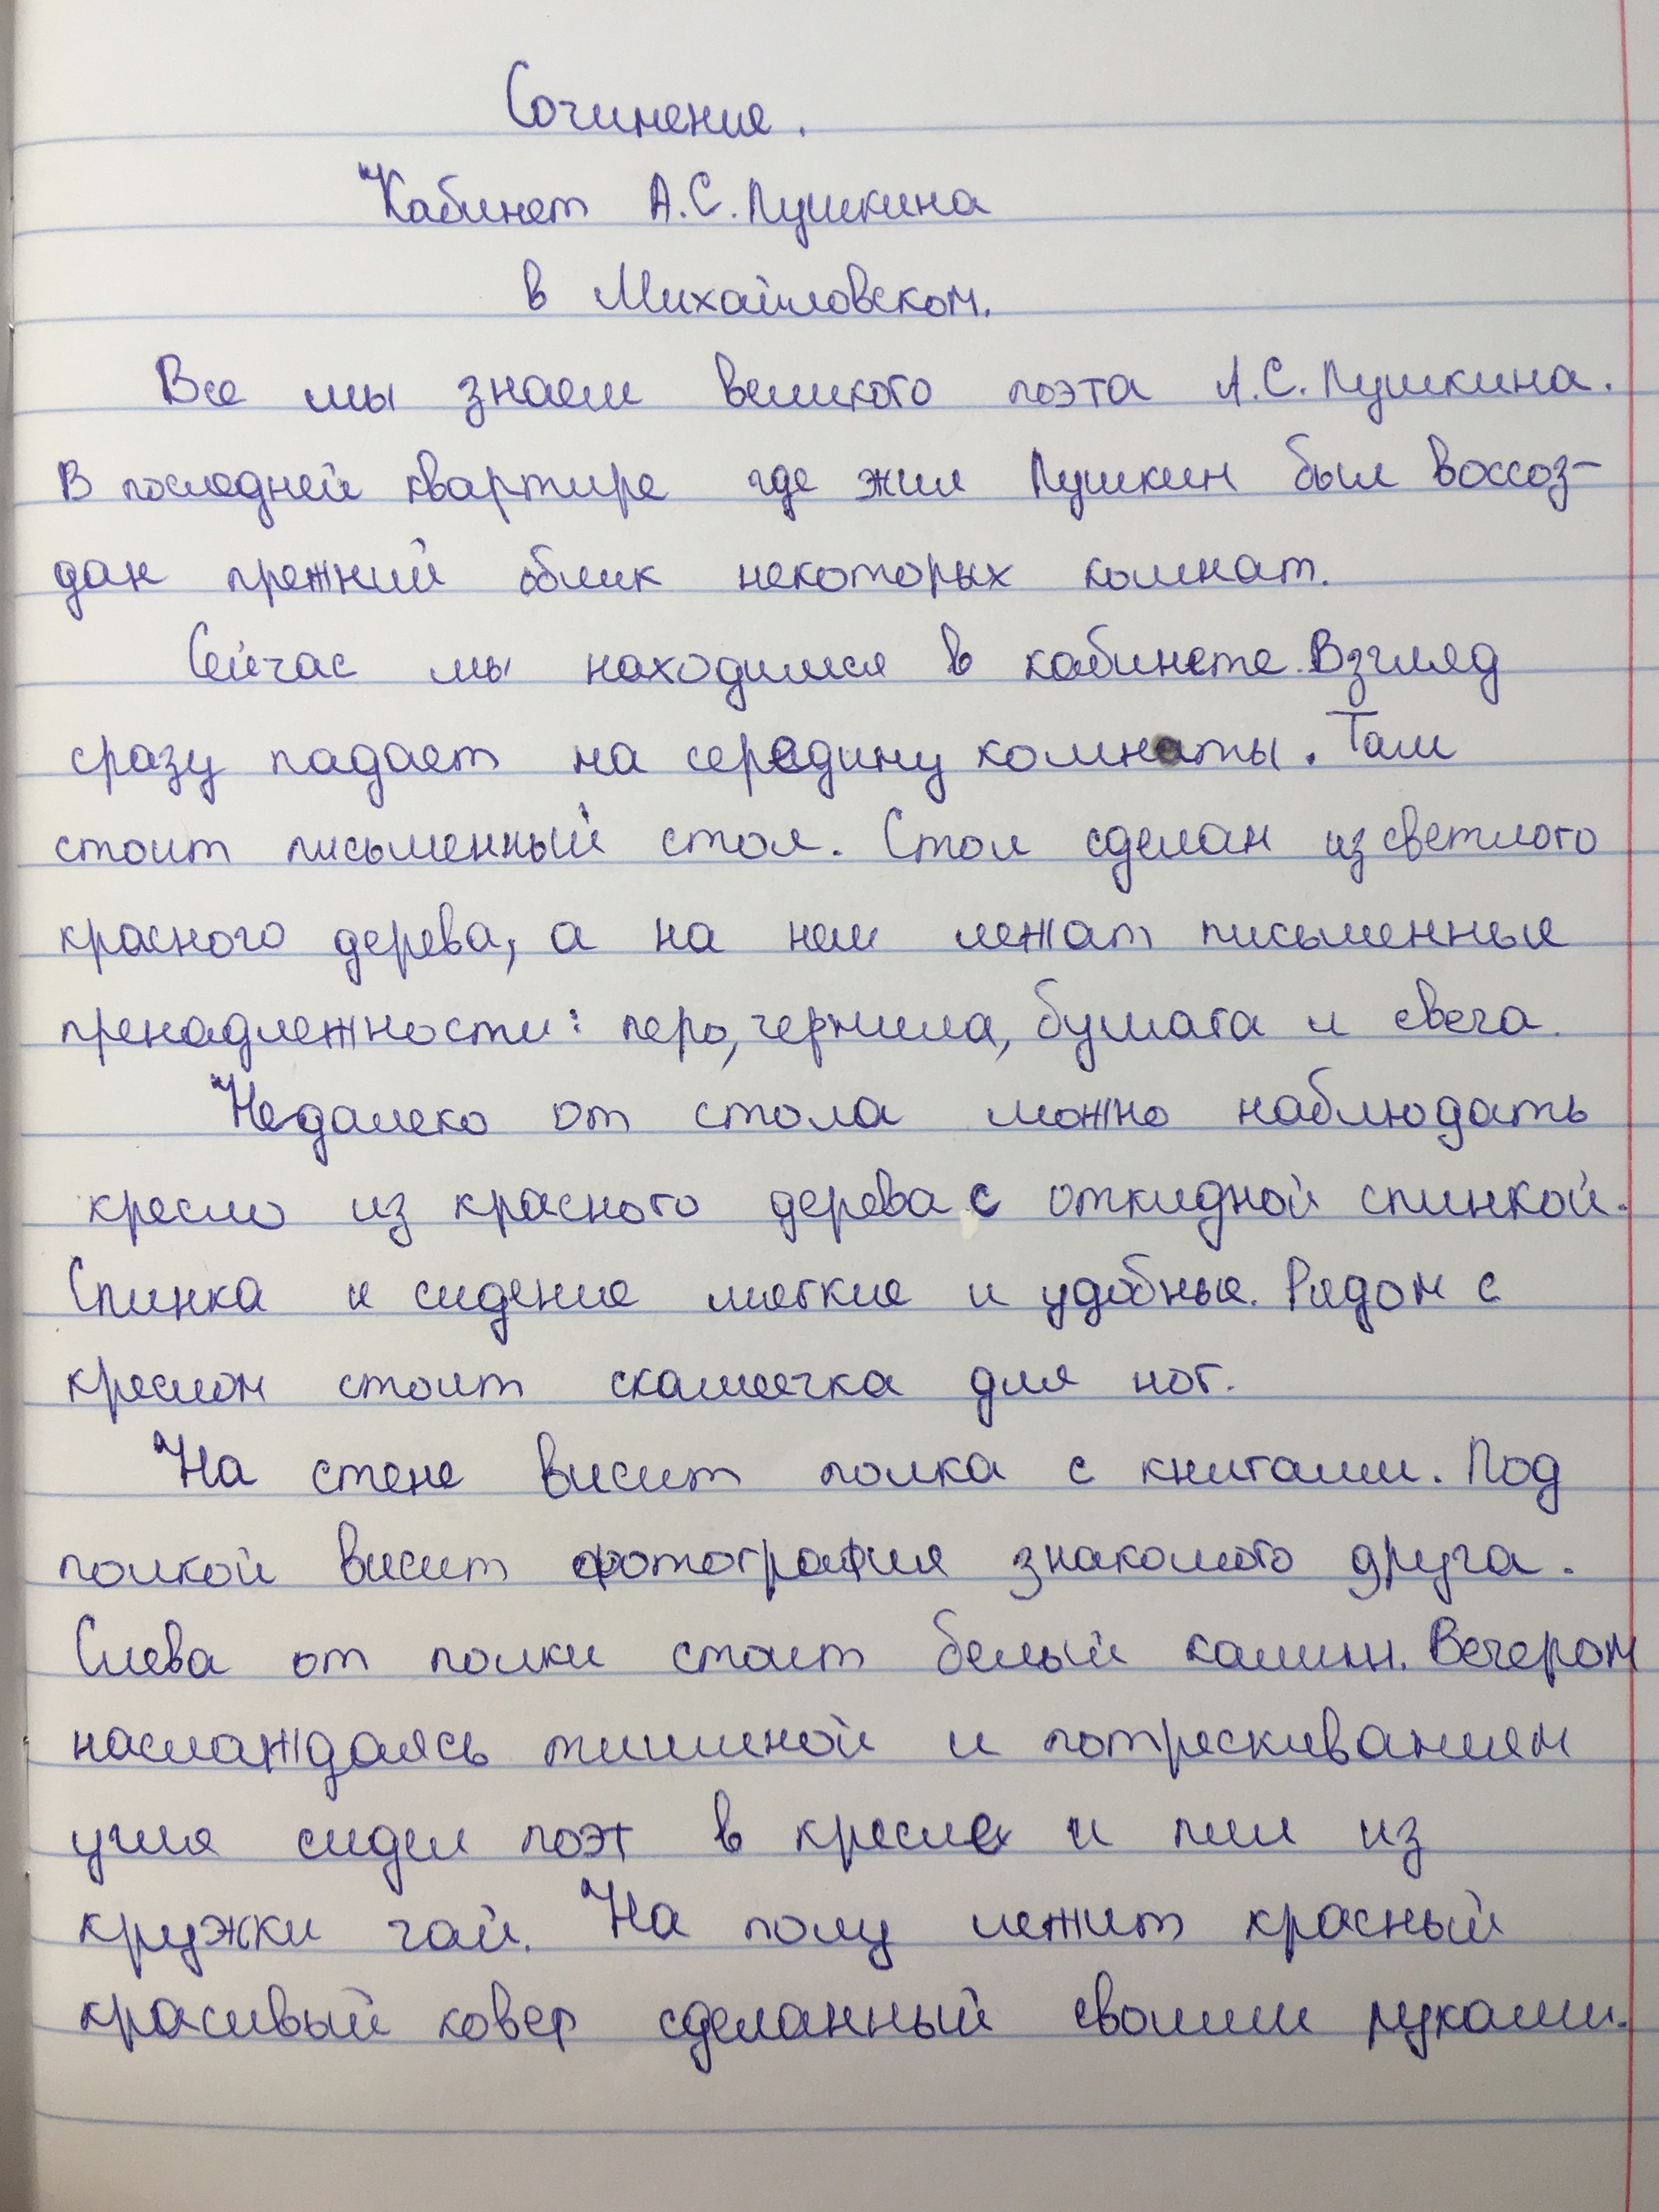 Сочинение.
Кабинет А.С. Пушкина
в Михайловском.
Все мы знаем великого поэта А.С. Пушкина.
В последней квартире где жил Пушкин был воссоз-
дан прежний облик некоторых комнат.
Сейчас мы находимся в кабинете. Взгляд
сразу падает на середину комнаты. Там
стоит письменный стол. Стол сделан из светлого
красного дерева, а на нем лежат письменные
пренадлежности: перо, чернила, бумага и свеча.
Недалеко от стола можно наблюдать
кресло из красного дерева с откидной спинкой.
Спинка и сидение мягкие и удобные. Рядом с
креслом стоит скамеечка для ног.
На стене висит полка с книгами. Под
полкой висит фотография знакомого друга.
Слева от полки стоит белый камин. Вечером
наслаждаясь тишиной и потрескиванием
угля сидел поэт в кресле и пил из
кружки чай. На полу лежит красный
красивый ковер сделанный своими руками.